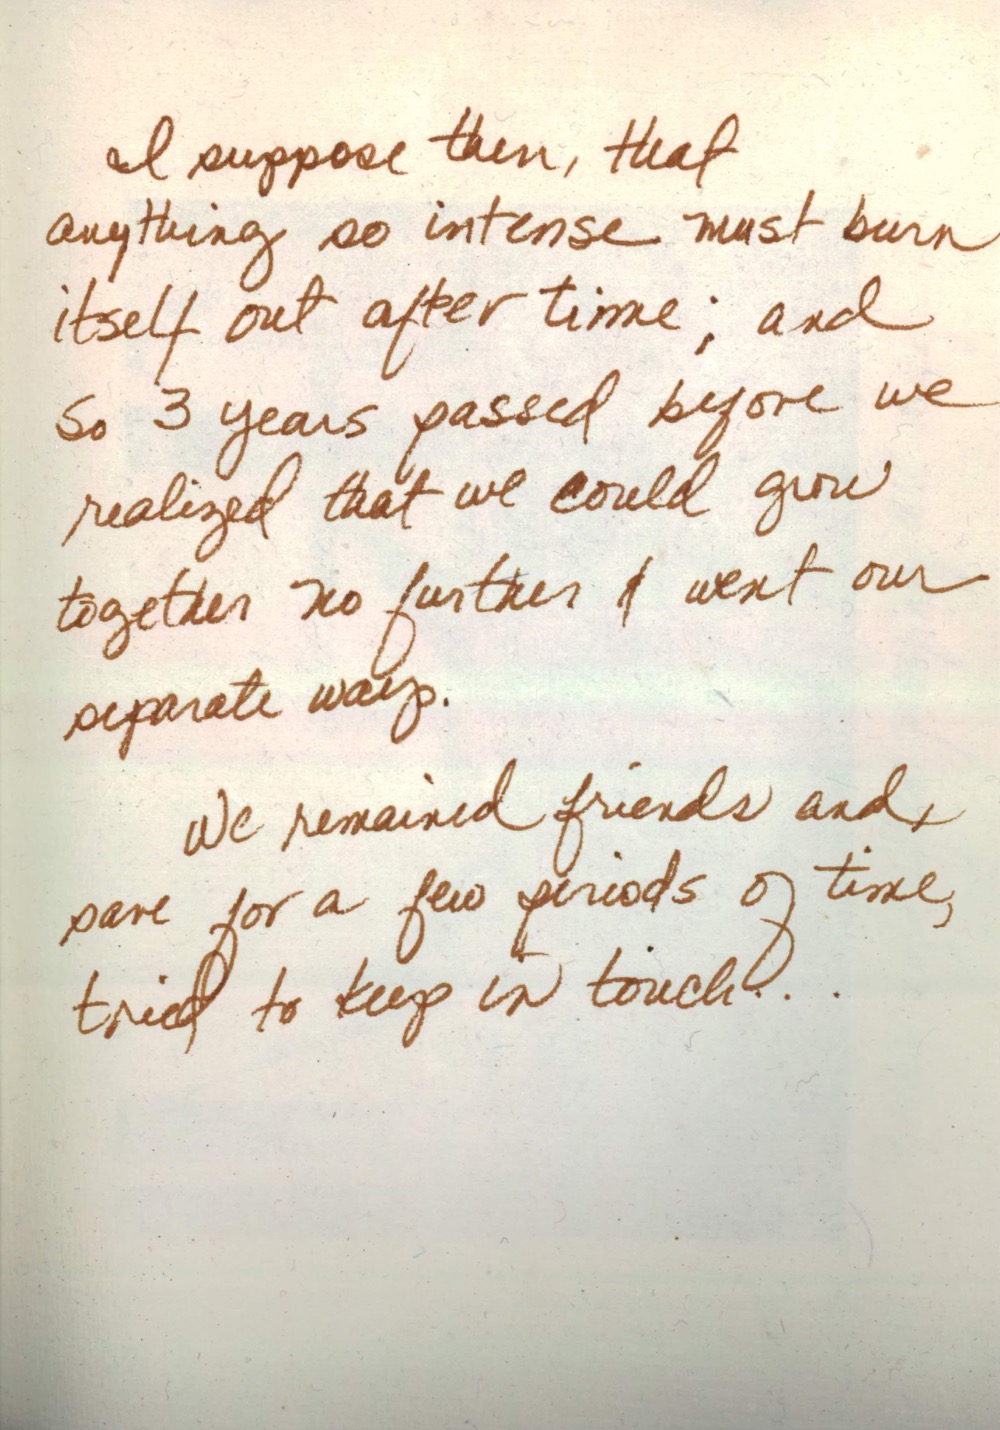 I suppose then, that
anything so intense must burn
itself out after time; and
so 3 years passed before we
realized that we could grow
together no further & went our
separate ways.
We remained friends and,
save for a few periods of time,
tried to keep in touch...